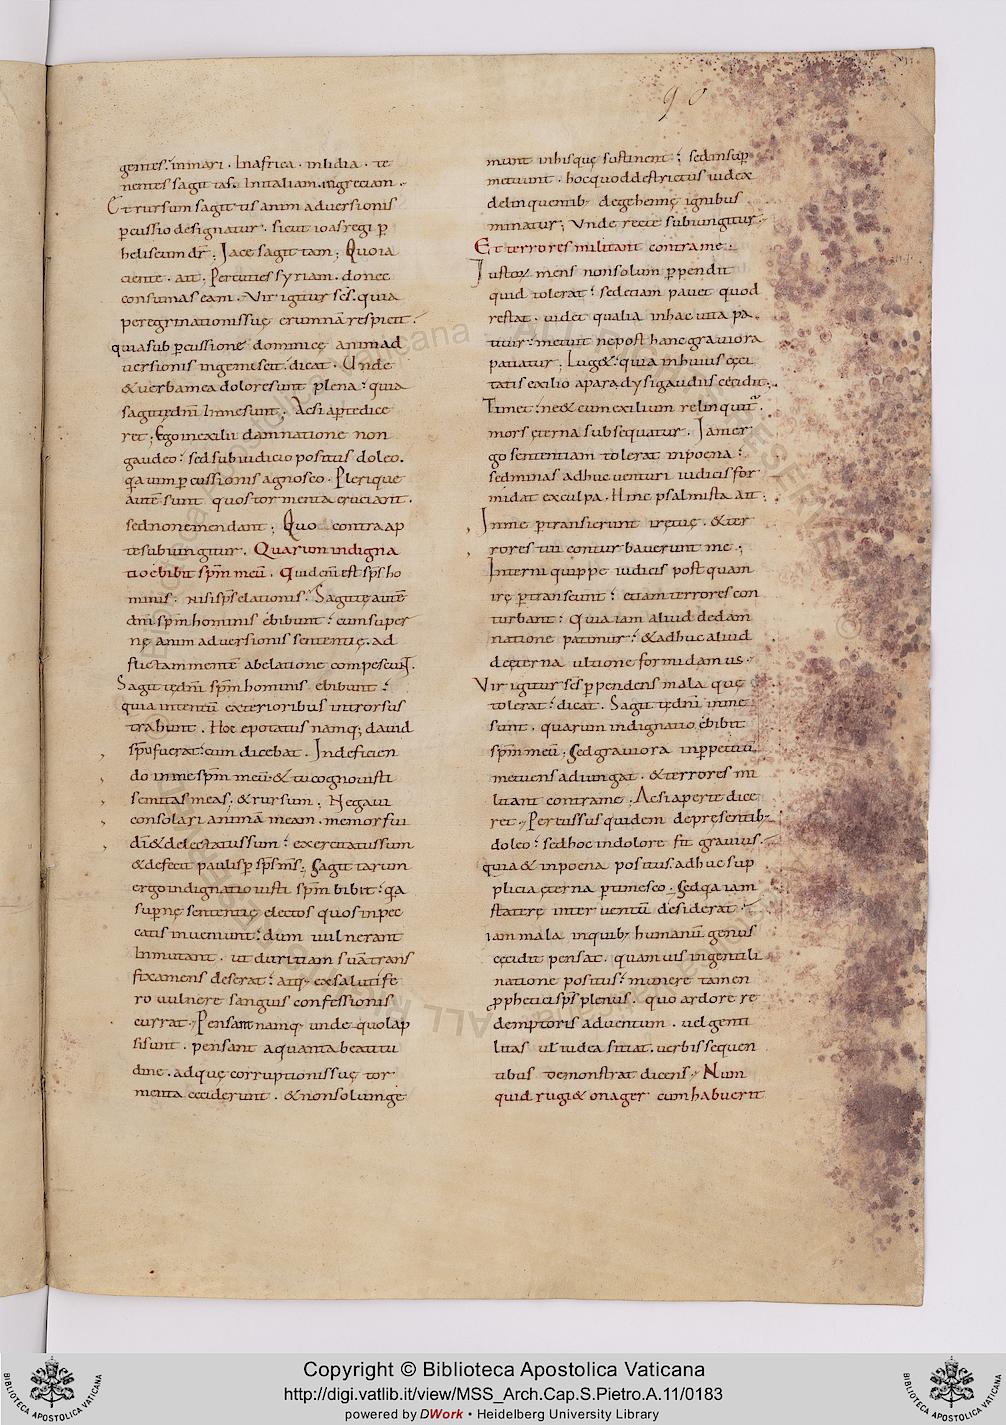 90
gentes. in mari. In africa. in lidia. te
nentes sagittas. In italiam. in greciam.
Et rursum sagittis animadversionis
ꝑcussio designatur. sicut ioas regi ꝑ
heliseum dr̄; Iace sagittam; Quo ia
ciente. ait. Percuties syriam. donec
consumas eam. Vir igitur scs̄. quia
peregrinationis suę erumnā respicit.
quia sub ꝑcussione dominicę animad
versionis ingemiscit. dicat. Unde
& verba mea dolore sunt plena. quia
sagittę dn̄i In me sunt. Ac si aꝑte dice
ret; Ego in exilii damnatione non
gaudeo. sed sub iudicio positus doleo.
qa vim ꝑcussionis agnosco. Plerique
autē sunt quos tormenta cruciant.
sed non emendant; Quo contra ap
te subiungitur. Quarum indigna
tio ebibit spm̄ meū. Quid enī est sps̄ ho
minis. nisi sps̄ elationis. Sagittę autē
dn̄i spm̄ hominis ebibunt. cum super
nę animadversionis sententię. ad
flictam mentē ab elatione compescunt.
Sagittę dn̄i spm̄ hominis ebibunt.
quia intentū exterioribus introrsus
trahunt. Hoc epotatus namq; david
spū fuerat. cum dicebat. In deficien
do in me spm̄ meū. & tu cognovisti
semitas meas. & rursum. Negavi
consolari animā meam. memor fui
di & delectatus sum. exercitatus sum
& defecit paulisꝑ sps̄ ms̄; Sagittarum
ergo indignatio iusti spm̄ bibit. qa
suꝑnę sententię electos quos in pec
catis inveniunt. dum vulnerant
Inmutant. ut duritiam suā trans
fixa mens deserat. atq; ex salutife
ro vulnere sanguis confessionis
currat. Pensant namq; unde quo lap
si sunt. pensant a quanta beatitu
dine. ad quę corruptionis suę tor
menta ceciderunt. & non solum ge
munt in his quę sustinent. sed insuꝑ
metuunt. hoc quod destrictus iudex
delinquentib; de gehennę ignibus
minatur; Unde recte subiungitur.
Et terrores militant contra me.
Iustoꝝ mens non solum ꝑpendit
quid tolerat. sed etiam pavet quod
restat. videt qualia in hac vita pa
titur. metuit ne post hanc graviora
patiatur. Lug&. quia in huius cęci
tatis exilio a paradysi gaudiis cecidit.
Timet. ne & cum exilium relinquitur.
mors ęterna subsequatur. Iam er
go sententiam tolerat in poena.
sed minas adhuc venturi iudicis for
midat ex culpa. Hinc psalmista ait.
In me ꝑtransierunt irę tuę. & ter
rores tui conturbaverunt me.
Interni quippe iudicis postquam
irę ꝑtranseunt. etiam terrores con
turbant. Quia iam aliud de dam
natione patimur. & adhuc aliud
de ęterna ultione formidamus.
Vir igitur scs̄ ꝑpendens mala quę
tolerat. dicat. Sagittę dn̄i in me
sunt. quarum indignatio ebibit
spm̄ meū; Sed graviora in ꝑpetuū
metuens adiungat. & terrores mi
litant contra me. Ac si aperte dice
ret. Percussus quidem de pręsentib;
doleo. sed hoc in dolore fit gravius.
quia & in poena positus. adhuc sup
plicia ęterna ꝑtimesco. Sed qa iam
statere interventū desiderat.
iam mala in quib; humanū genus
cecidit pensat. quamvis in gentili
natione positus. munere tamen
ꝓphetici sps̄ plenus. quo ardore re
demptoris adventum. vel genti
litas ul̄ iudea sitiat. verbis sequen
tibus demonstrat dicens. Num
quid rugi& onager cum habuerit